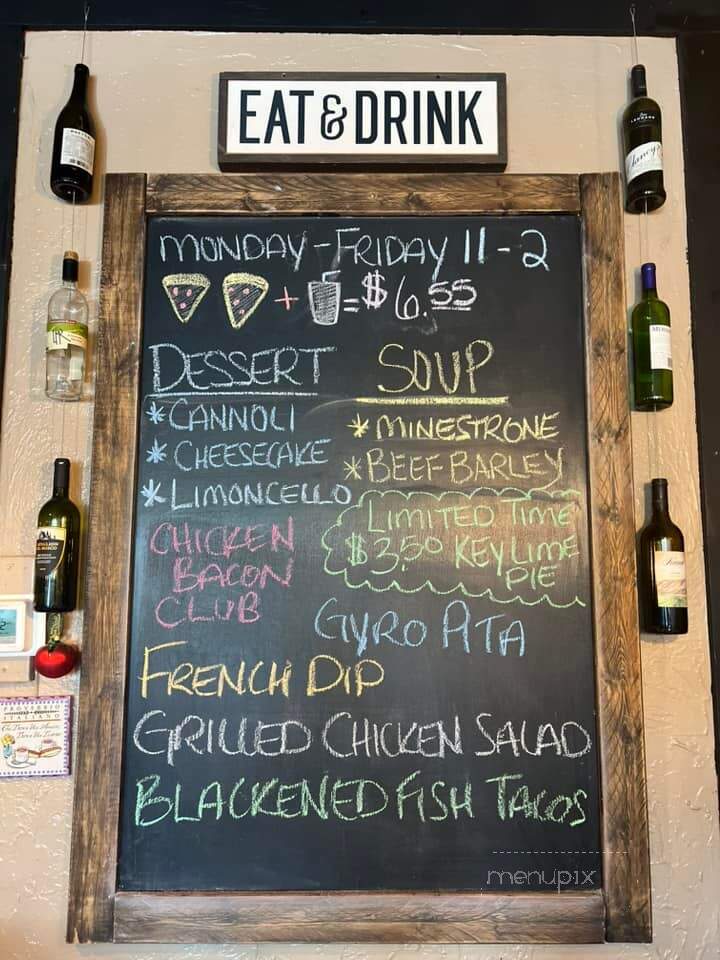 EAT & DRINK
MONDAY-FRIDAY 11-2
+ = $6.55
DESSERT
* CANNOLI
* CHEESECAKE
* LIMONCELLO
SOUP
* MINESTRONE
* BEEF BARLEY
LIMITED TIME
$3.50 KEY LIME
PIE
CHICKEN
BACON
CLUB
GYRO PITA
FRENCH DIP
GRILLED CHICKEN SALAD
BLACKENED FISH TACOS
PROVERBIO
ITALIANO
menupix